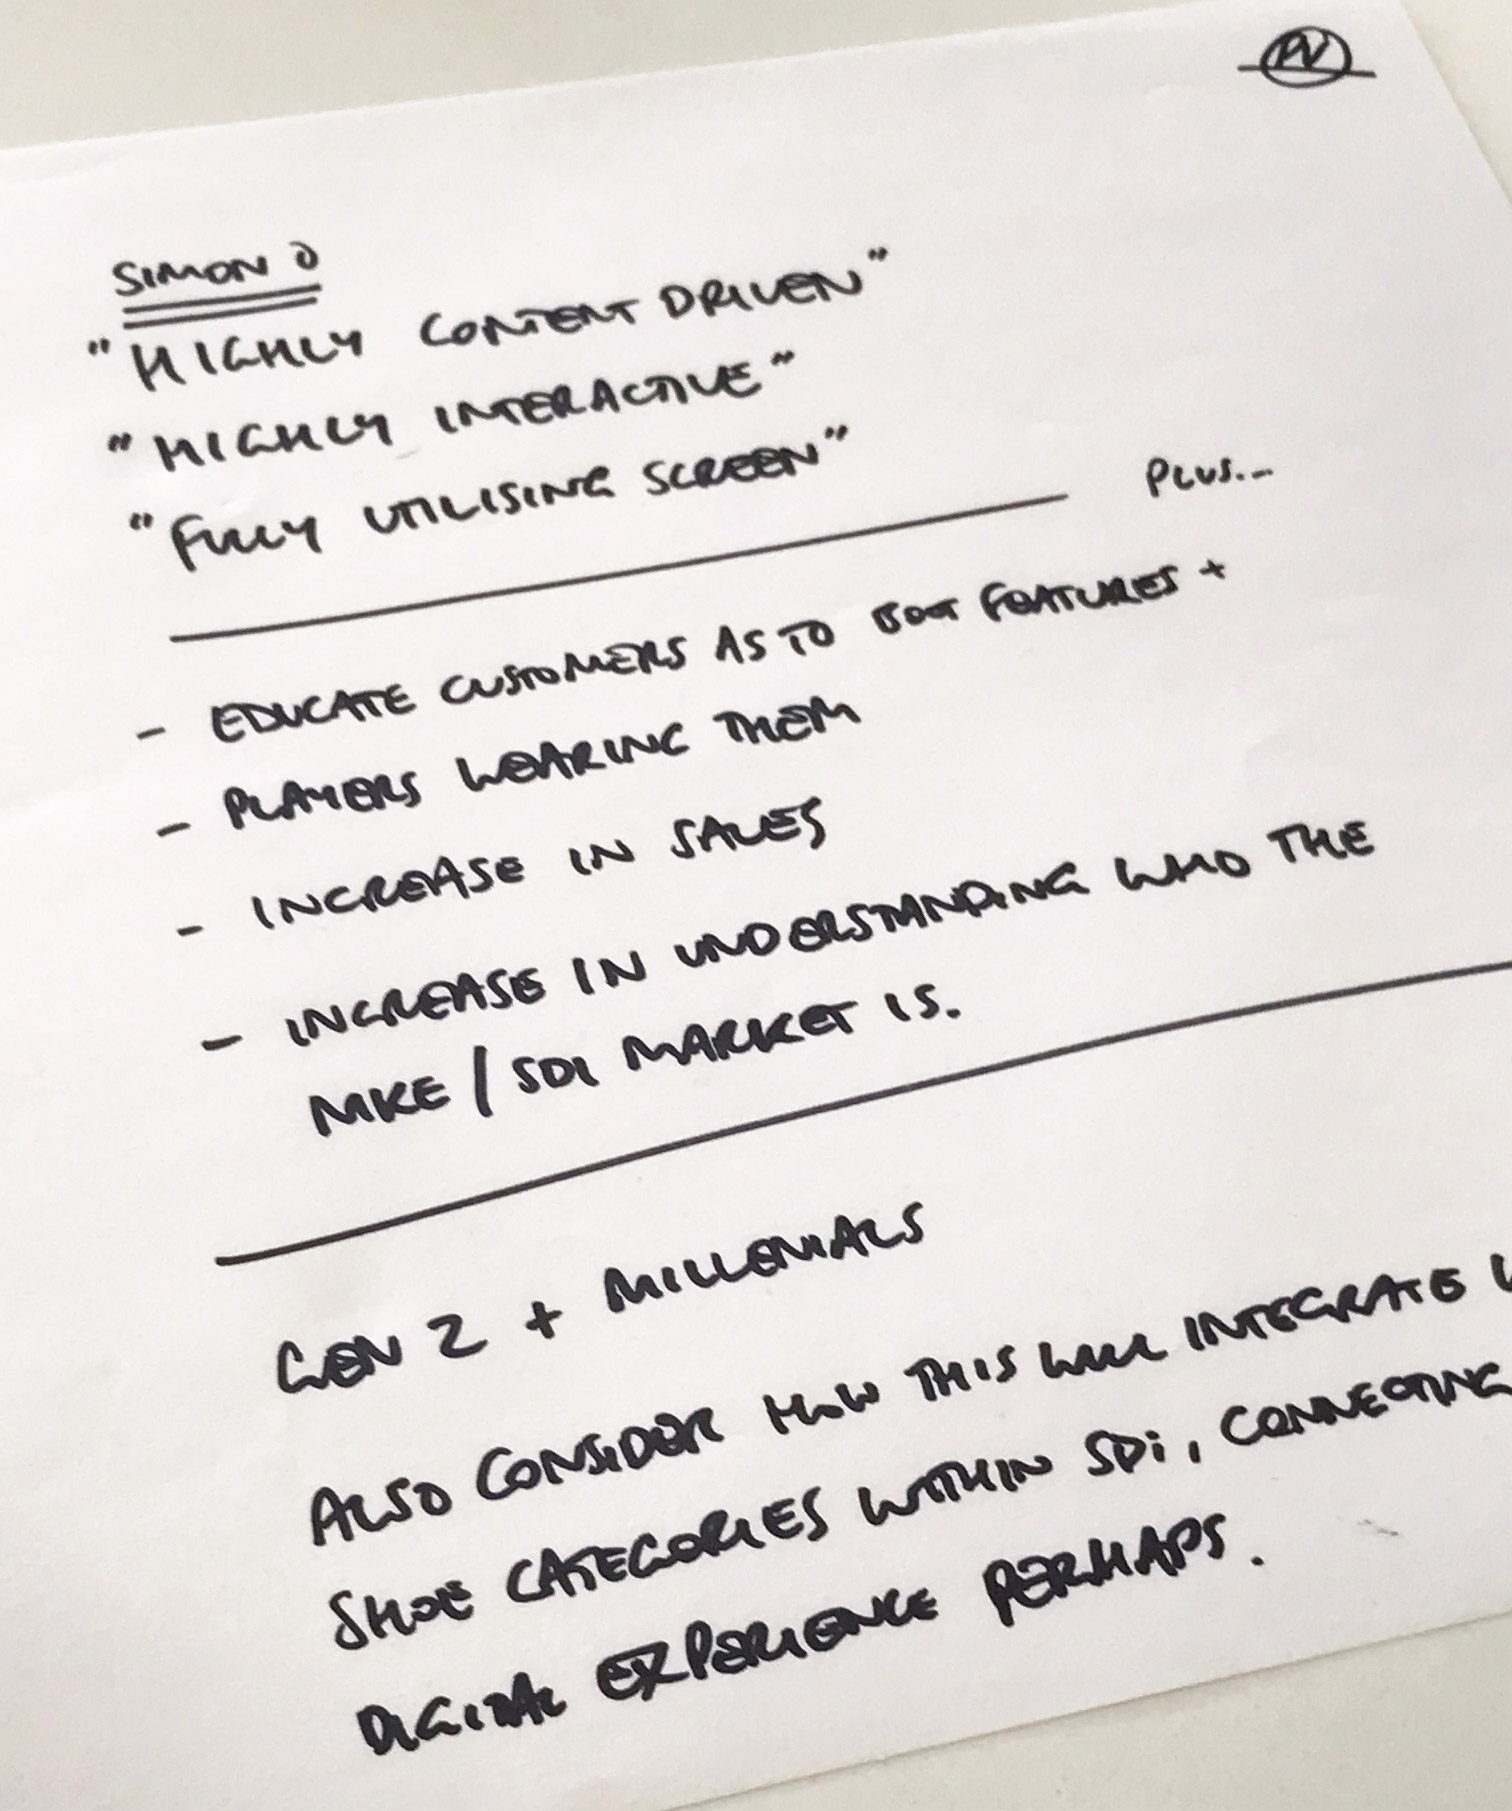 SIMON O
"HIGHLY CONTENT DRIVEN"
"HIGHLY INTERACTIVE"
"FULLY UTILISING SCREEN"
PLUS...
- EDUCATE CUSTOMERS AS TO BOOT FEATURES +
- PLAYERS WEARING THEM
- INCREASE IN SALES
- INCREASE IN UNDERSTANDING WHO THE
NIKE / SDI MARKET IS.
GEN Z + MILLENIALS
ALSO CONSIDER HOW THIS WILL INTEGRATE
SHOE CATEGORIES WITHIN SDi, CONNECTING
DIGITAL EXPERIENCE PERHAPS.